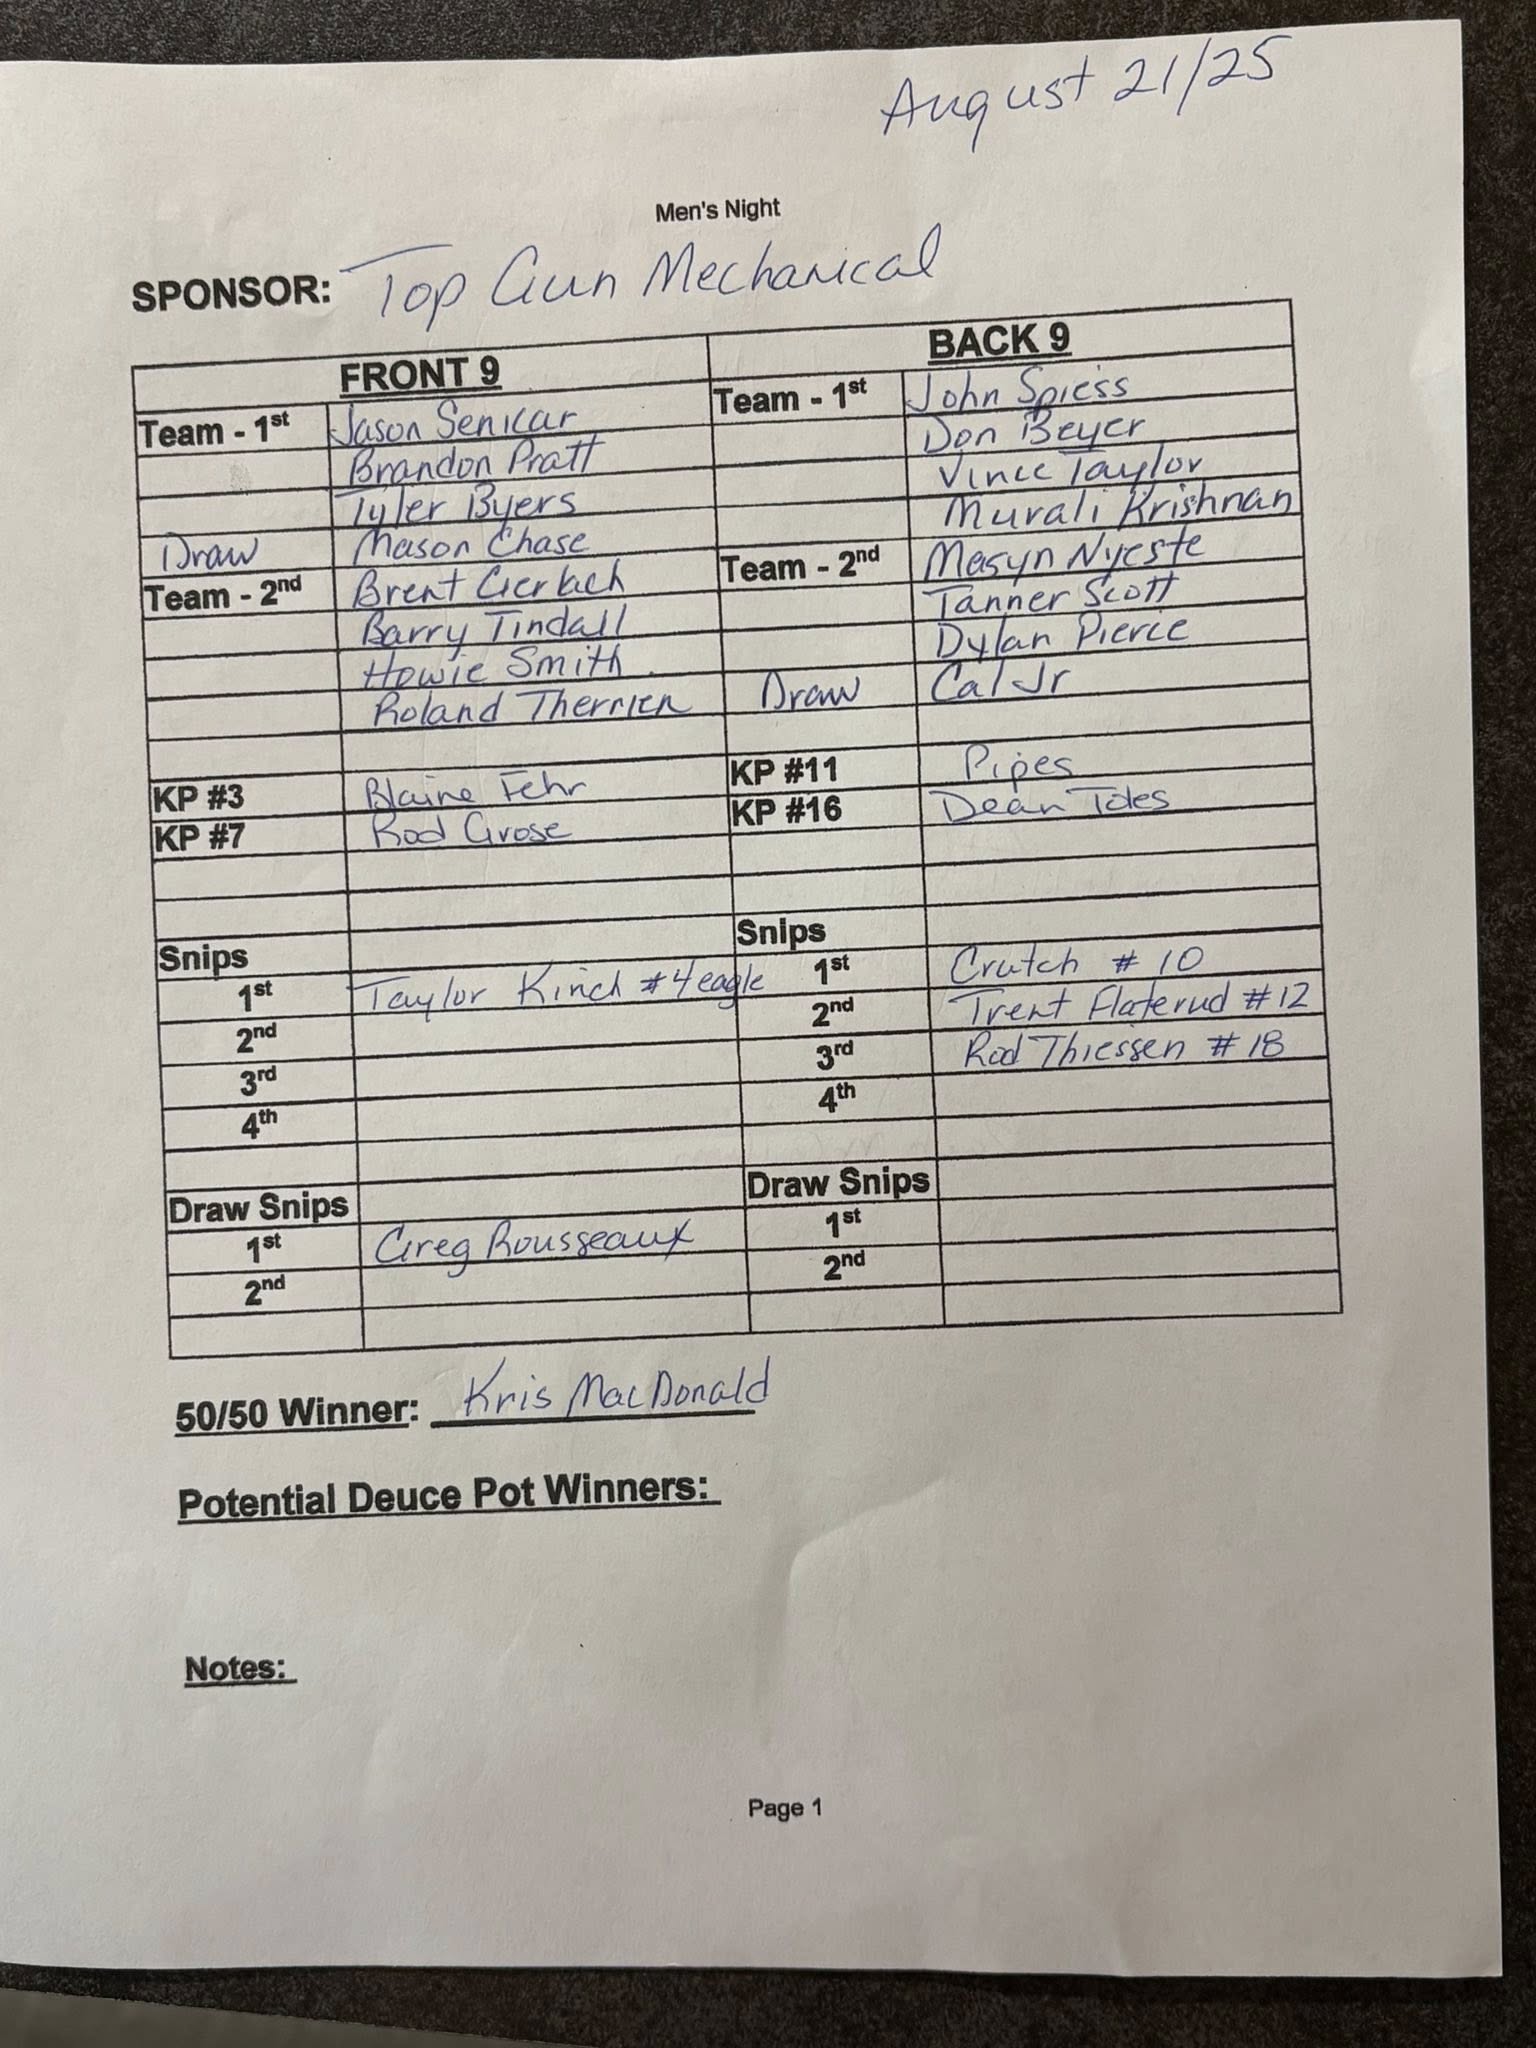 August 21/25
Men's Night
SPONSOR: Top Gun Mechanical
FRONT 9 BACK 9
Team - 1st Jason Senkar Team - 1st John Spiess
Brandon Pratt Don Beyer
Tyler Byers Vince Taylor
Draw Mason Chase Murali Krishnan
Team - 2nd Brent Gerlach Team - 2nd Masyn Nyeste
Barry Tindall Tanner Scott
Howie Smith Dylan Pierce
Roland Therrien Draw Cal Jr
KP #3 Blaine Fehr KP #11 Pipes
KP #7 Rod Grose KP #16 Dean Toles
Snips Snips
1st Taylor Kinch #4 eagle 1st Crutch #10
2nd 2nd Trent Flaterud #12
3rd 3rd Rod Thiessen #18
4th 4th
Draw Snips Draw Snips
1st Greg Rousseaux 1st
2nd 2nd
50/50 Winner: Kris MacDonald
Potential Deuce Pot Winners:
Notes:
Page 1